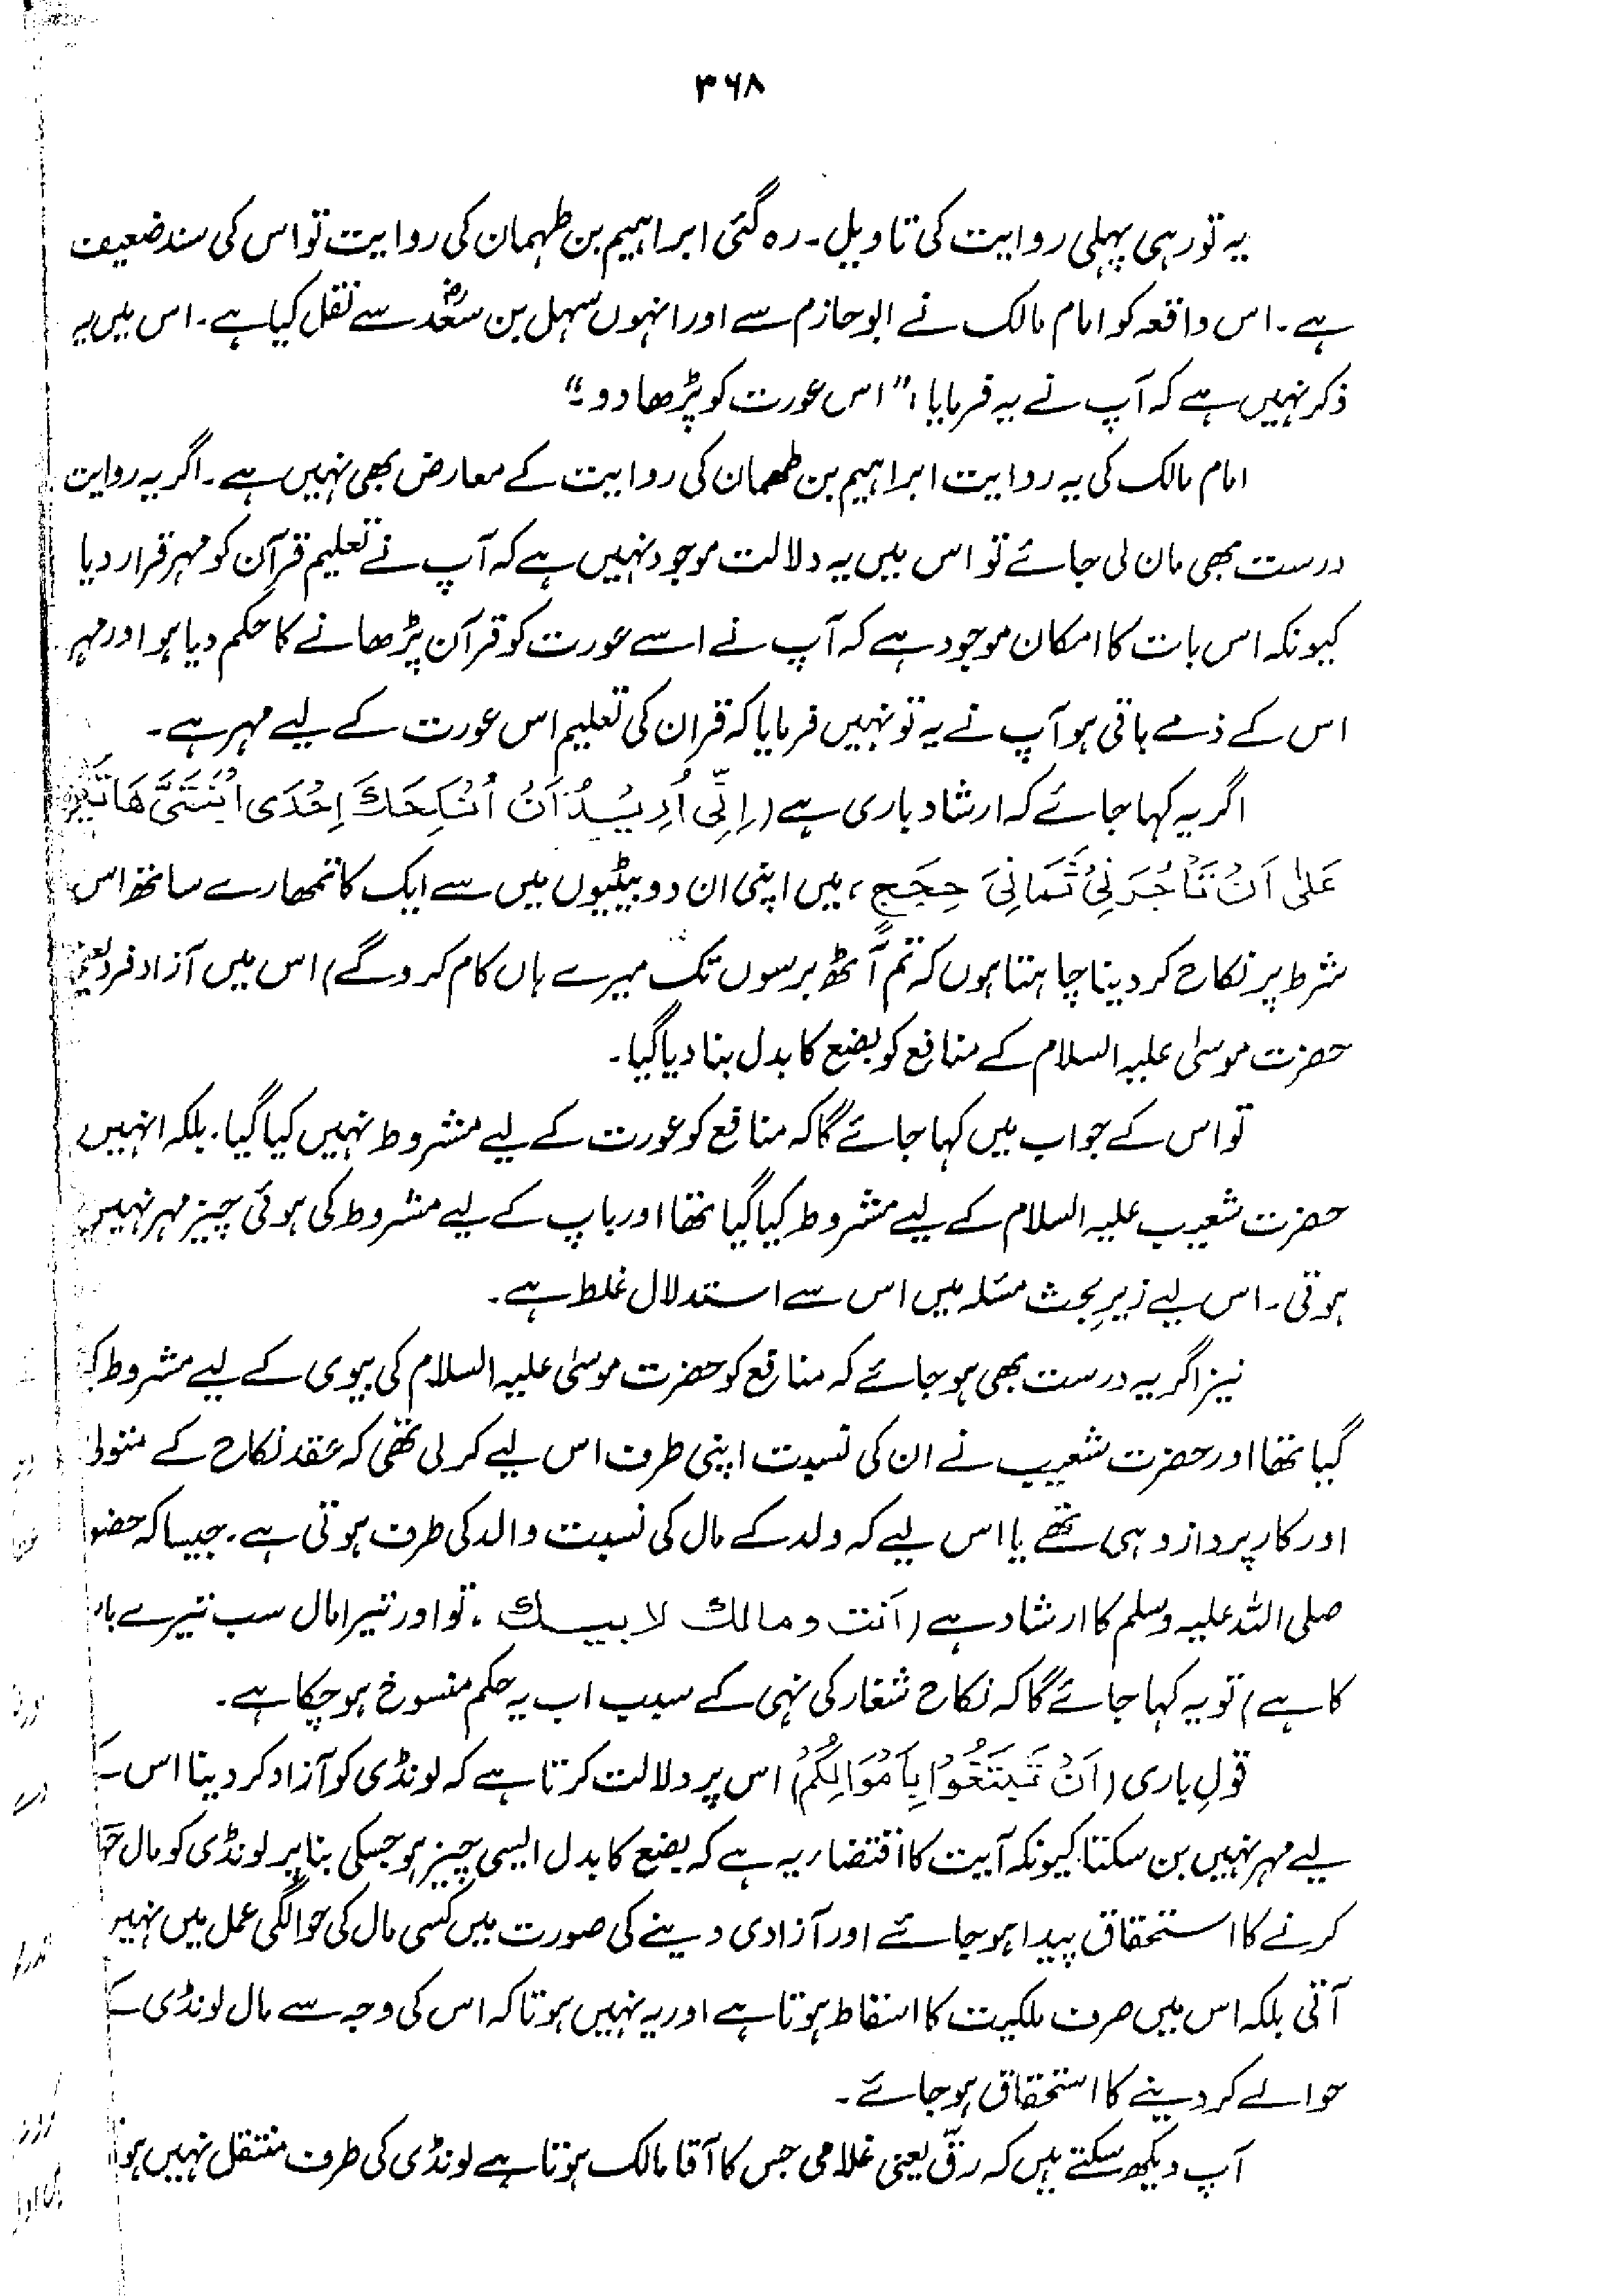 ۳۶۸
یہ تو رہی پہلی روایت کی تاویل۔ رہ گئی ابراہیم بن طہمان کی روایت تو اس کی سند ضعیف
ہے۔ اس واقعہ کو امام مالک نے ابو حازم سے اور انہوں سہل بن سعدؓ سے نقل کیا ہے۔ اس میں یہ
ذکر نہیں ہے کہ آپ نے یہ فرمایا، "اس عورت کو پڑھا دو۔"
امام مالک کی یہ روایت ابراہیم بن طھمان کی روایت کے معارض بھی نہیں ہے۔ اگر یہ روایت
درست بھی مان لی جائے تو اس میں یہ دلالت موجود نہیں ہے کہ آپ نے تعلیم قرآن کو مہر قرار دیا
کیونکہ اس بات کا امکان موجود ہے کہ آپ نے اسے عورت کو قرآن پڑھانے کا حکم دیا ہو اور مہر
اس کے ذمے باقی ہو آپ نے یہ تو نہیں فرمایا کہ قران کی تعلیم اس عورت کے لیے مہر ہے۔
اگر یہ کہا جائے کہ ارشاد باری ہے (اِنِّی اُرِیْدُ اَنْ اُنْکِحَكَ اِحْدَی ابْنَتَیَّ هَاتَیْنِ
عَلٰی اَنْ تَأْجُرَنِیْ ثَمَانِیَ حِجَجٍ، میں اپنی ان دو بیٹیوں میں سے ایک کا تمھارے ساتھ اس
شرط پر نکاح کر دینا چاہتا ہوں کہ تم آٹھ برسوں تک میرے ہاں کام کرو گے) اس میں آزاد فرد یعنی
حضرت موسیٰ علیہ السلام کے منافع کو بضع کا بدل بنا دیا گیا۔
تو اس کے جواب میں کہا جائے گا کہ منافع کو عورت کے لیے مشروط نہیں کیا گیا۔ بلکہ انہیں
حضرت شعیب علیہ السلام کے لیے مشروط کیا گیا تھا اور باپ کے لیے مشروط کی ہوئی چیز مہر نہیں
ہوتی۔ اس لیے زیرِ بحث مسٔلہ میں اس سے استدلال غلط ہے۔
نیز اگر یہ درست بھی ہو جائے کہ منافع کو حضرت موسیٰ علیہ السلام کی بیوی کے لیے مشروط
گیا تھا اور حضرت شعیب نے ان کی نسبت اپنی طرف اس لیے کر لی تھی کہ عقد نکاح کے متولی
اور کارپرداز وہی تھے یا اس لیے کہ ولد کے مال کی نسبت والد کی طرف ہوتی ہے۔ جیسا کہ حضو
صلی اللہ علیہ وسلم کا ارشاد ہے (اَنت و مالك لابیك، تو اور تیرا مال سب تیرے با
کا ہے) تو یہ کہا جائے گا کہ نکاح شغار کی نہی کے سبب اب یہ حکم منسوخ ہو چکا ہے۔
قولِ باری (اَنْ تَبْتَغُوْا بِاَمْوَالِکُمْ) اس پر دلالت کرتا ہے کہ لونڈی کو آزاد کر دینا اس
لیے مہر نہیں بن سکتا کیونکہ آیت کا اقتضا ریہ ہے کہ بضع کا بدل ایسی چیز ہو جسکی بنا پر لونڈی کو مال
کرنے کا استحقاق پیدا ہو جائے اور آزادی دینے کی صورت میں کسی مال کی حوالگی عمل میں نہیں
آتی بلکہ اس میں صرف ملکیت کا اسقاط ہوتا ہے اور یہ نہیں ہوتا کہ اس کی وجہ سے مال لونڈی
حوالے کر دینے کا استحقاق ہو جائے۔
آپ دیکھ سکتے ہیں کہ رقّ یعنی غلامی جس کا آقا مالک ہوتا ہے لونڈی کی طرف منتقل نہیں ہو